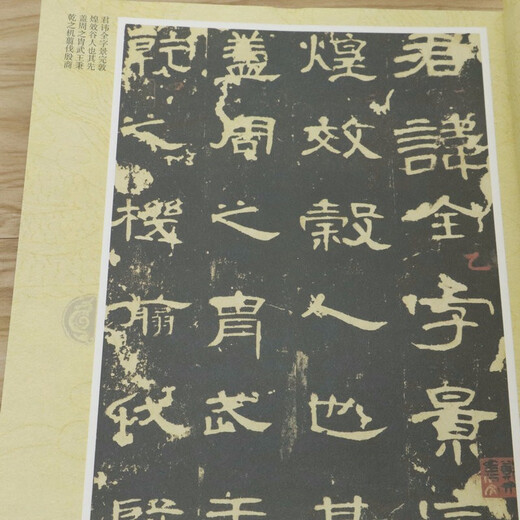 君讳全字景完敦
煌效谷人也其先
盖周之胄武王秉
乾之机翦伐殷商
君諱全字景完
煌效穀人也其
蓋周之胄武王
乾之機翦伐殷
乙